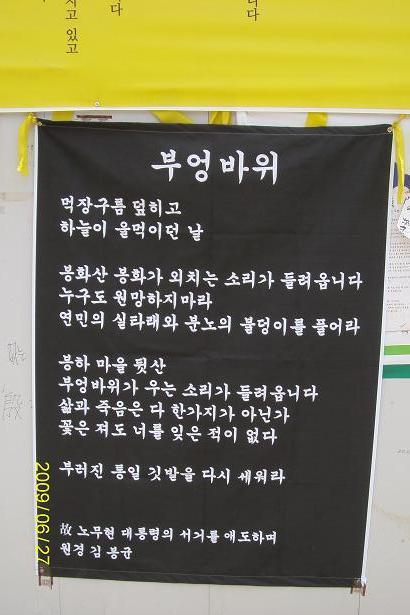 니다
다
지고 있고
부엉바위
먹장구름 덮히고
하늘이 울먹이던 날
봉화산 봉화가 외치는 소리가 들려옵니다
누구도 원망하지마라
연민의 실타래와 분노의 불덩이를 풀어라
봉하 마을 뒷산
부엉바위가 우는 소리가 들려옵니다
삶과 죽음은 다 한가지가 아닌가
꽃은 져도 너를 잊은 적이 없다
부러진 통일 깃발을 다시 세워라
故 노무현 대통령의 서거를 애도하며
원경 김봉균
2009/06/27